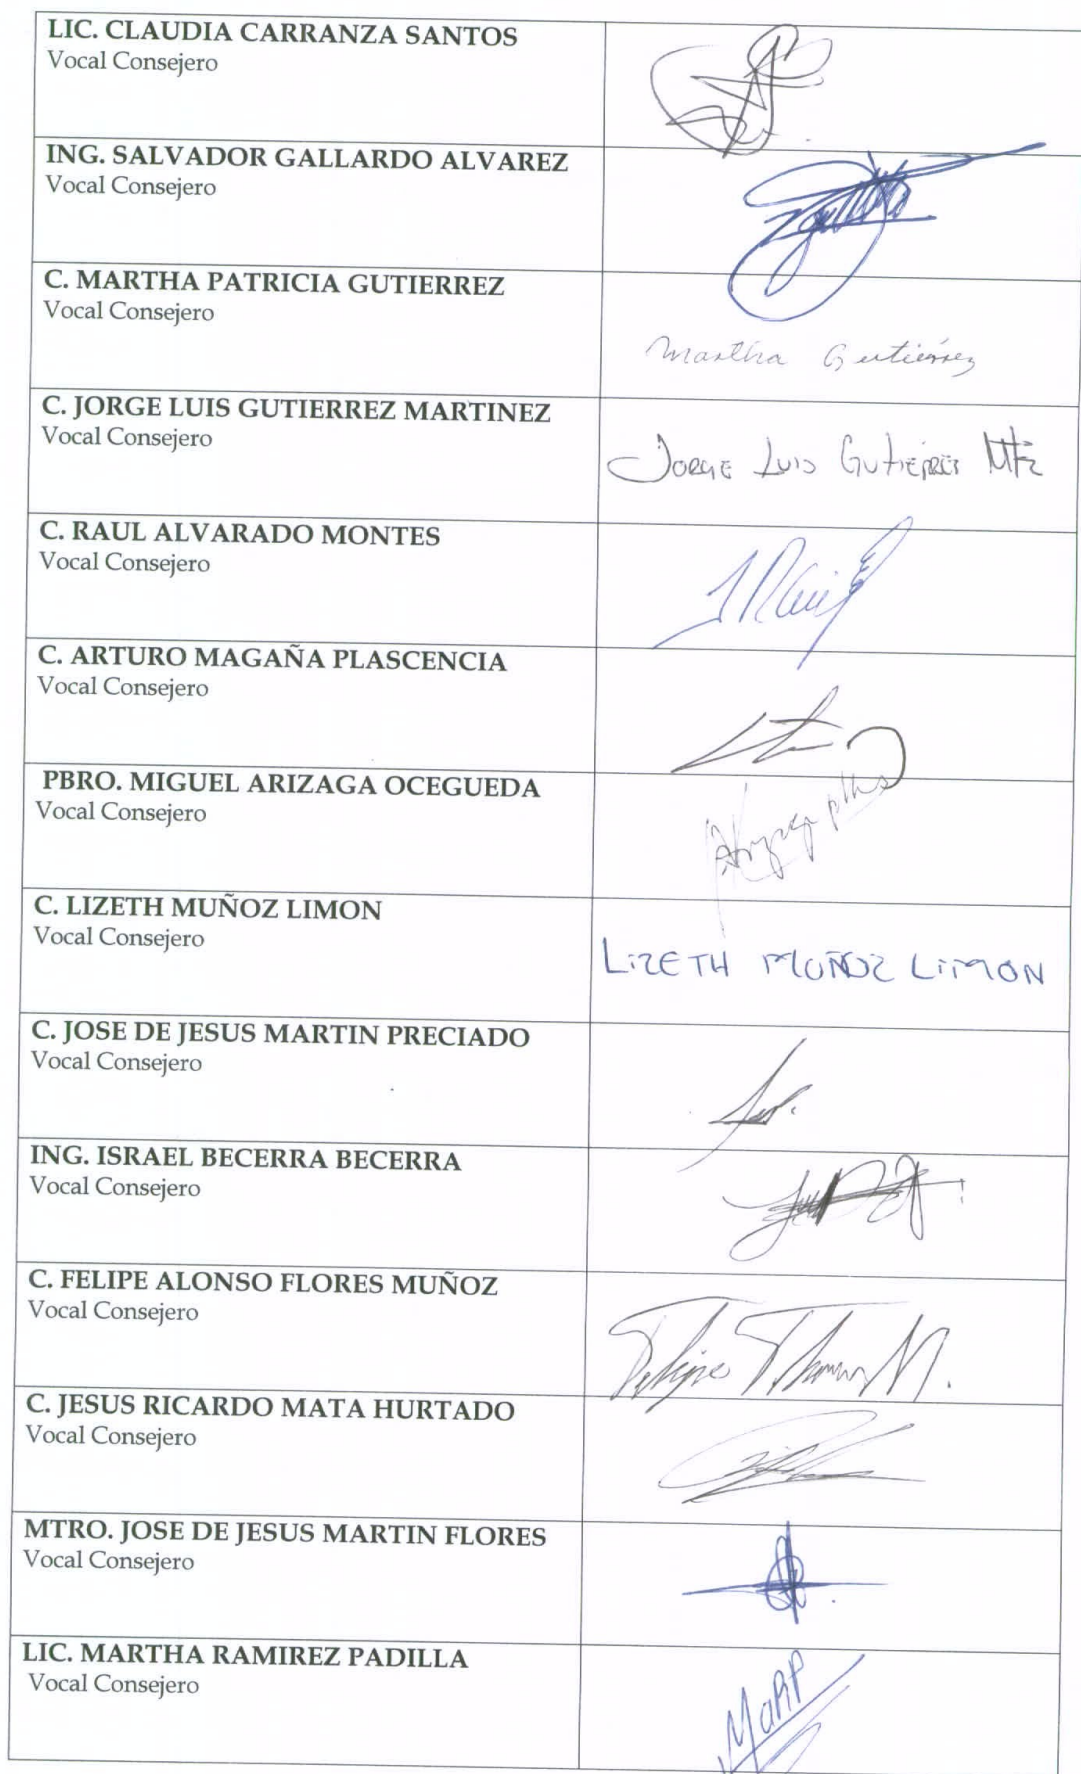 LIC. CLAUDIA CARRANZA SANTOS
Vocal Consejero
ING. SALVADOR GALLARDO ALVAREZ
Vocal Consejero
C. MARTHA PATRICIA GUTIERREZ
Vocal Consejero
Martha Gutiérrez
C. JORGE LUIS GUTIERREZ MARTINEZ
Vocal Consejero
JORGE LUIS GUTIERREZ Mtz
C. RAUL ALVARADO MONTES
Vocal Consejero
C. ARTURO MAGAÑA PLASCENCIA
Vocal Consejero
PBRO. MIGUEL ARIZAGA OCEGUEDA
Vocal Consejero
C. LIZETH MUÑOZ LIMON
Vocal Consejero
LIZETH MUÑOZ LIMON
C. JOSE DE JESUS MARTIN PRECIADO
Vocal Consejero
ING. ISRAEL BECERRA BECERRA
Vocal Consejero
C. FELIPE ALONSO FLORES MUÑOZ
Vocal Consejero
C. JESUS RICARDO MATA HURTADO
Vocal Consejero
MTRO. JOSE DE JESUS MARTIN FLORES
Vocal Consejero
LIC. MARTHA RAMIREZ PADILLA
Vocal Consejero
MaRP